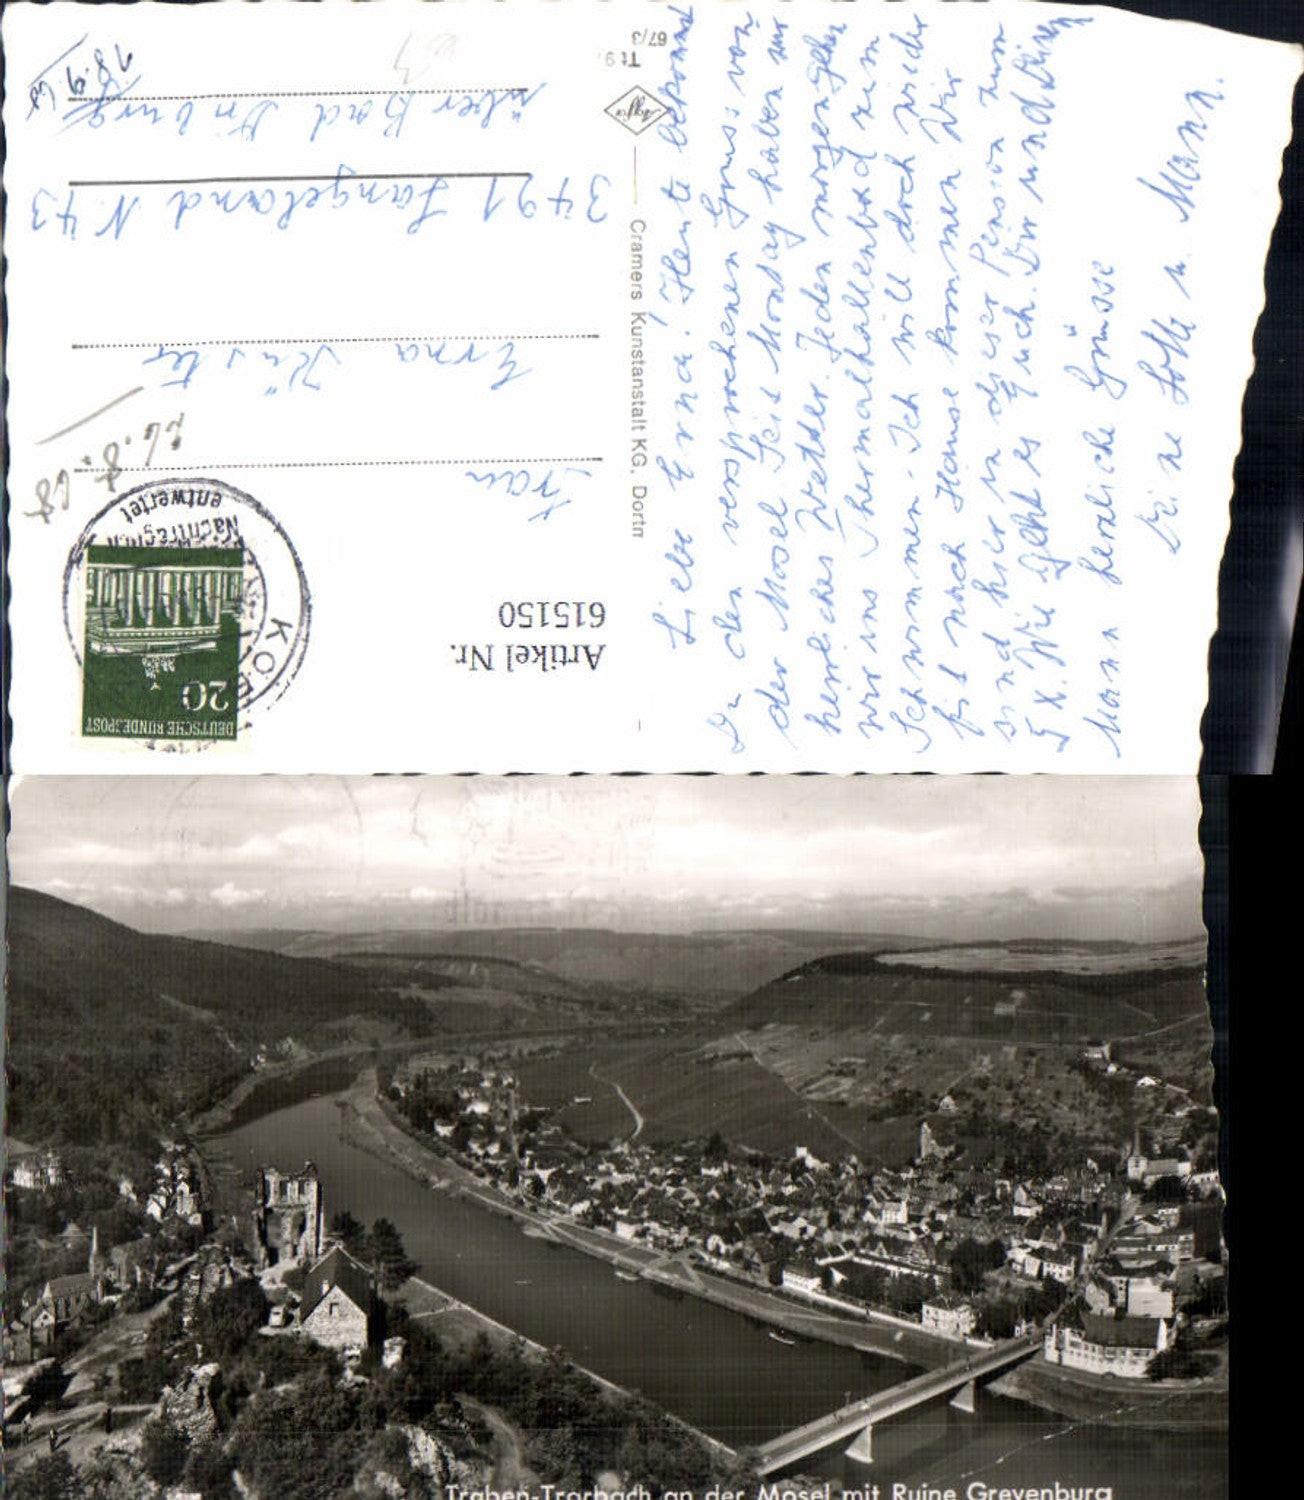 Liebe Erna! Heute bekommst
Du den versprochenen Gruss von
der Mosel. Seit Montag haben wir
herrliches Wetter. Jeden morgen gehen
wir ins Thermalhallenbad zum
Schwimmen. Ich will doch wieder
fit nach Hause kommen. Wir
sind hier in dieser Pension zum
5 x. Wie geht es Euch. Dir und Deinem
Mann herzliche Grüsse
Deine Lotte u. Mann.
Cramers Kunstanstalt KG, Dortm
Agfa
Tt 9
67/3
Artikel Nr.
615150
DEUTSCHE BUNDESPOST
20
Nachträglich
entwertet
26.8.68
Frau
Erna Küster
3491 Langeland N. 43
über Bad Driburg
Traben-Trarbach an der Mosel mit Ruine Grevenburg